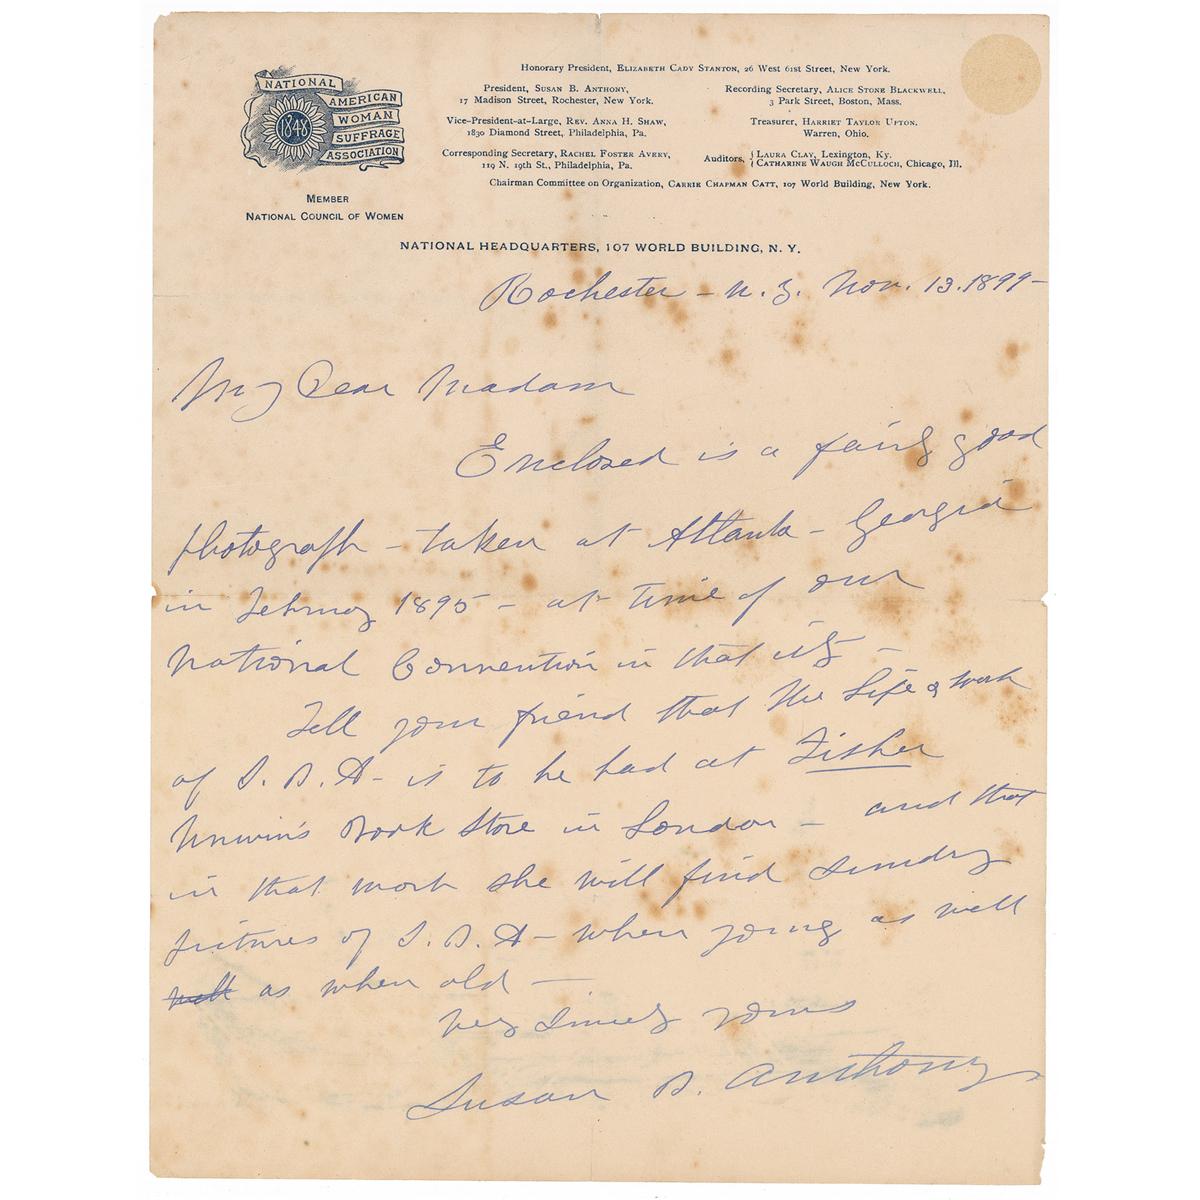 NATIONAL
AMERICAN
WOMAN
SUFFRAGE
ASSOCIATION
1848
MEMBER
NATIONAL COUNCIL OF WOMEN
Honorary President, ELIZABETH CADY STANTON, 26 West 61st Street, New York.
President, SUSAN B. ANTHONY,
17 Madison Street, Rochester, New York.
Recording Secretary, ALICE STONE BLACKWELL,
3 Park Street, Boston, Mass.
Vice-President-at-Large, REV. ANNA H. SHAW,
1830 Diamond Street, Philadelphia, Pa.
Treasurer, HARRIET TAYLOR UPTON,
Warren, Ohio.
Corresponding Secretary, RACHEL FOSTER AVERY,
119 N. 19th St., Philadelphia, Pa.
Auditors, { LAURA CLAY, Lexington, Ky.
{ CATHARINE WAUGH MCCULLOCH, Chicago, Ill.
Chairman Committee on Organization, CARRIE CHAPMAN CATT, 107 World Building, New York.
NATIONAL HEADQUARTERS, 107 WORLD BUILDING, N. Y.
Rochester – N. Y. Nov. 13. 1899 –
My Dear Madam
Enclosed is a fairly good
photograph – taken at Atlanta – Georgia
in February 1895 – at time of our
National Convention in that city –
Tell your friend that the Life & Work
of S. B. A – is to be had at Fisher
Unwin's Book Store in London – and that
in that work she will find sundry
pictures of S. B. A – when young as well
well as when old –
Very Sincerely yours
Susan B. Anthony